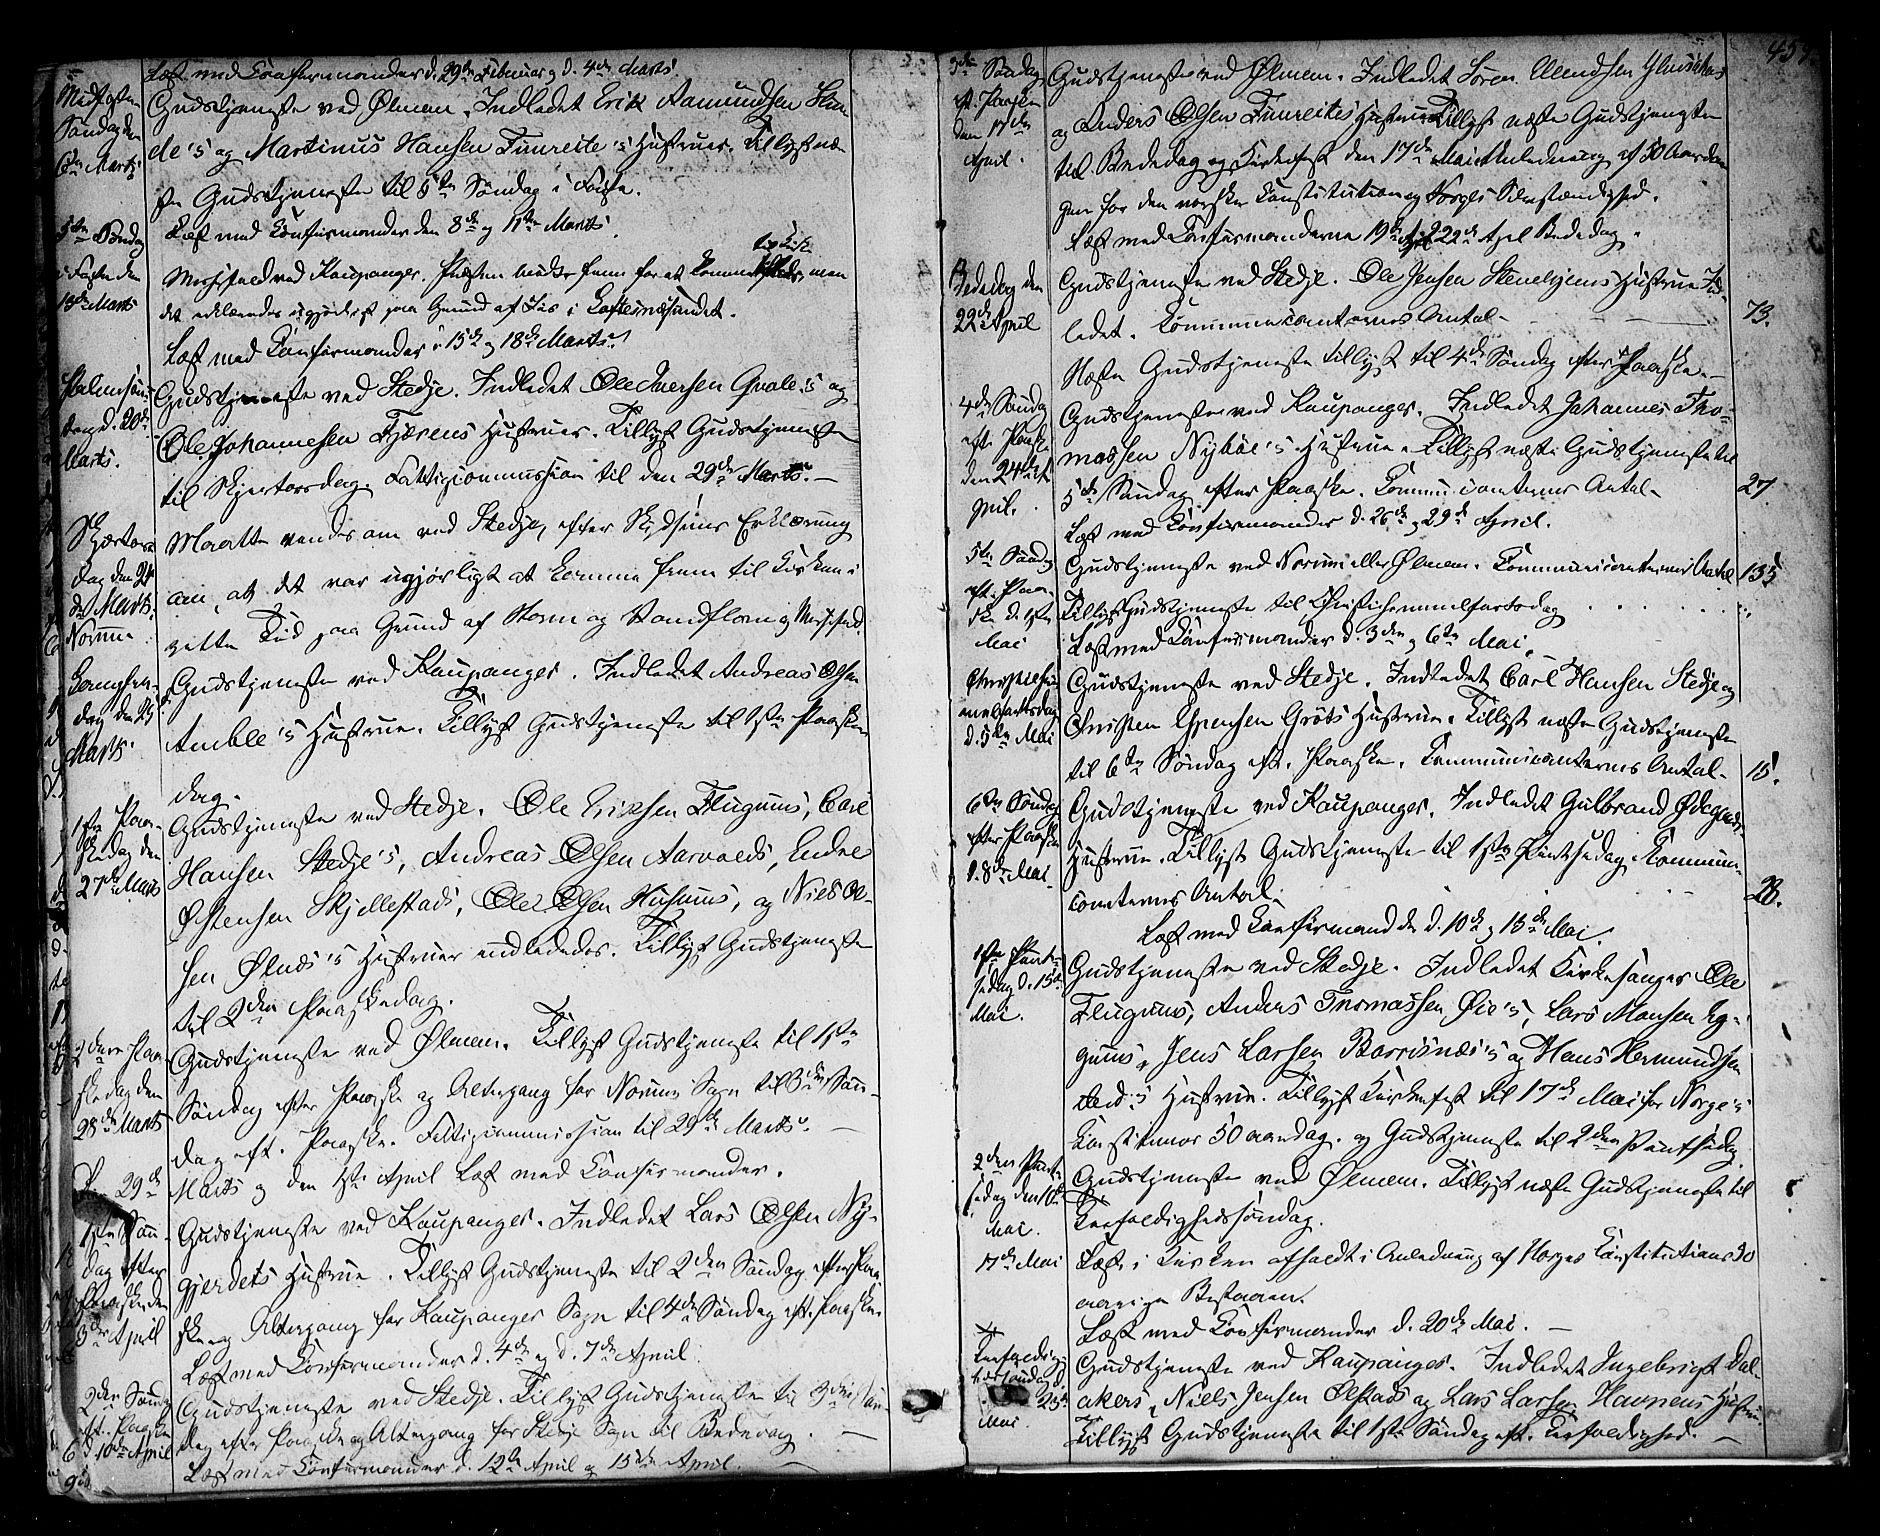 Læst med Confirmander d. 29de Februar og d. 4de Marts.
Midfaste
Søndag den
6te Marts
Gudstjeneste ved Ølmem. Indledet Erik Aamundsen Skin
de's og Martinus Hansen Fuureite's Hustruer. Tillyst næ
ste Gudstjeneste til 5te Søndag i Faste.
Læst med Confirmander den 8de og 11te Marts.
5te Søndag
i Faste den
13de Marts
Messefald ved Kaupanger. Præsten havde frem for at komme til Kirke, men
det erklæredes ugjørligt paa Grund af Iis i Loftesnæssundet.
Læst med Confirmander d. 15de og 18de Marts.
Palmesøn
dag d. 20de
Marts.
Gudstjeneste ved Stedje. Indledet Ole Iversen Qvale's og
Ole Johannesen Fjærens Hustruer. Tillyst Gudstjeneste
til Skjertorsdag. Fattigcommission til den 29de Marts. —
Skjærtors
dag den 24
de Marts.
Norum
Maatte vendes om ved Stedje, efter Skydsens Erklæring
om, at det var ugjørligt at komme frem til Kirken i
rette Tid paa Grund af Storm og Vandflom og Messefald.
Langfre-
dag den 25
Marts.
Gudstjeneste ved Kaupanger. Indledet Andreas Olsen
Amble's Hustrue. Tillyst Gudstjeneste til 1ste Paaske
dag.
1ste Paa-
skedag den
27de Marts
Gudstjeneste ved Stedje. Ole Eriksen Flugums, Carl
Hansen Stedje's, Andreas Olsen Aarvolds, Endre
Østensen Skjellestads, Ole Olsen Husums, og Niels Ol-
sen Ølnæs's Hustruer indlededes. Tillyst Gudstjeneste
til 2den Paaskedag.
2den Paa-
skedag den
28de Marts
Gudstjeneste ved Ølmem. Tillyst Gudstjeneste til 1ste
Søndag efter Paaske og Altergang for Norums Sogn til 5te Søn-
dag eft. Paaske. Fattigcommission til 29de Marts. —
Den 29de
Marts og den 1ste April Læst med Confirmander.
1ste Søn-
dag efter
Paaske den
3die April
Gudstjeneste ved Kaupanger. Indledet Lars Olsen Ny-
gjerdets Hustrue. Tillyst Gudstjeneste til 2den Søndag efter Paa-
ske og Altergang for Kaupanger Sogn til 4de Søndag eft. Paaske.
Læst med Confirmander d. 4de og d. 7de April
2den Søndag
eft. Paaske
d. 10de April
Gudstjeneste ved Stedje. Tillyst Gudstjeneste til 3die Søn-
dag efter Paaske og Altergang for Stedje Sogn til Bededag. —
Læst med Confirmander d. 12te April og 15de April.
457.
3die Søndag
eft. Paaske
den 17de
April.
Gudstjeneste ved Ølmem. Indledet Søren
og Anders Olsen Fuureites Hustruer. Tillyst næste Gudstjeneste
til Bededag og Kirkefest den 17de Mai i Anledning af 50 Aarsda
gen for den norske Constitution og Norges Selvstændighed.
Læst med Confirmanderne 19de April 22de April Bededag.
Bededag den
22de April
Gudstjeneste ved Stedje. Ole Jensen Stenehjems Hustrue Ind-
ledet. Communicanternes Antal — 73.
Næste Gudstjeneste tillyst til 4de Søndag efter Paaske. —
4de Søndag
eft. Paaske
den 24de A
pril.
Gudstjeneste ved Kaupanger. Indledet Johannes Tho-
massen Nybøe's Hustrue. Tillyst næste Gudstjeneste til
5te Søndag efter Paaske. Communicanternes Antal — 27
Læst med Confirmander d. 26de og 29de April.
5te Søndag
eft. Paa-
ske d. 1ste
Mai
Gudstjeneste ved Norum eller Ølmem. Communicanternes Antal 135
Tillyst Gudstjeneste til Christi Himmelfartsdag
Læst med Confirmander d. 3die og 6te Mai.
Christi Him-
melfartsdag
d. 5te Mai
Gudstjeneste ved Stedje. Indledet Carl Hansen Stedje og
Christen Espensen Grøts Hustrue. Tillyst næste Gudstjeneste
til 6te Søndag eft. Paaske. Communicanternes Antal — 15.
6te Søndag
efter Paaske
d. 8de Mai.
Gudstjeneste ved Kaupanger. Indledet Gulbrand Ødegaards
Hustrue. Tillyst Gudstjeneste til 1ste Pintsedag. Communi-
canternes Antal — 28.
Læst med Confirmander d. 10de og 13de Mai.
1ste Pint-
sedag d. 15de
Mai.
Gudstjeneste ved Stedje. Indledet Kirkesanger Ole
Flugums, Anders Thomassen Øie's, Lars Monsen Eg-
gums, Jens Larsen Barsnæs's og Hans Hermundsen
Hustrue. Tillyst Kirkefest til 17de Mai for Norge's
50 aarsdag. og Gudstjeneste til 2den Pintsedag.
2den Pint-
sedag den 16de
Mai.
Gudstjeneste ved Ølmem. Tillyst næste Gudstjeneste til
Trefoldighedssøndag.
17de Mai
Fest i Kirken afholdt i Anledning af Norges Constitutions 50
aarige Bestaaen.
Læst med Confirmander d. 20de Mai. —
Trefoldig-
hedssøndag d.
22de
Mai.
Gudstjeneste ved Kaupanger. Indledet Ingebrigt Dal-
akers, Niels Jensen Ølstads og Lars Larsen Havnens Hustru.
Tillyst Gudstjeneste til 1ste Søndag eft. Trefoldighed. —